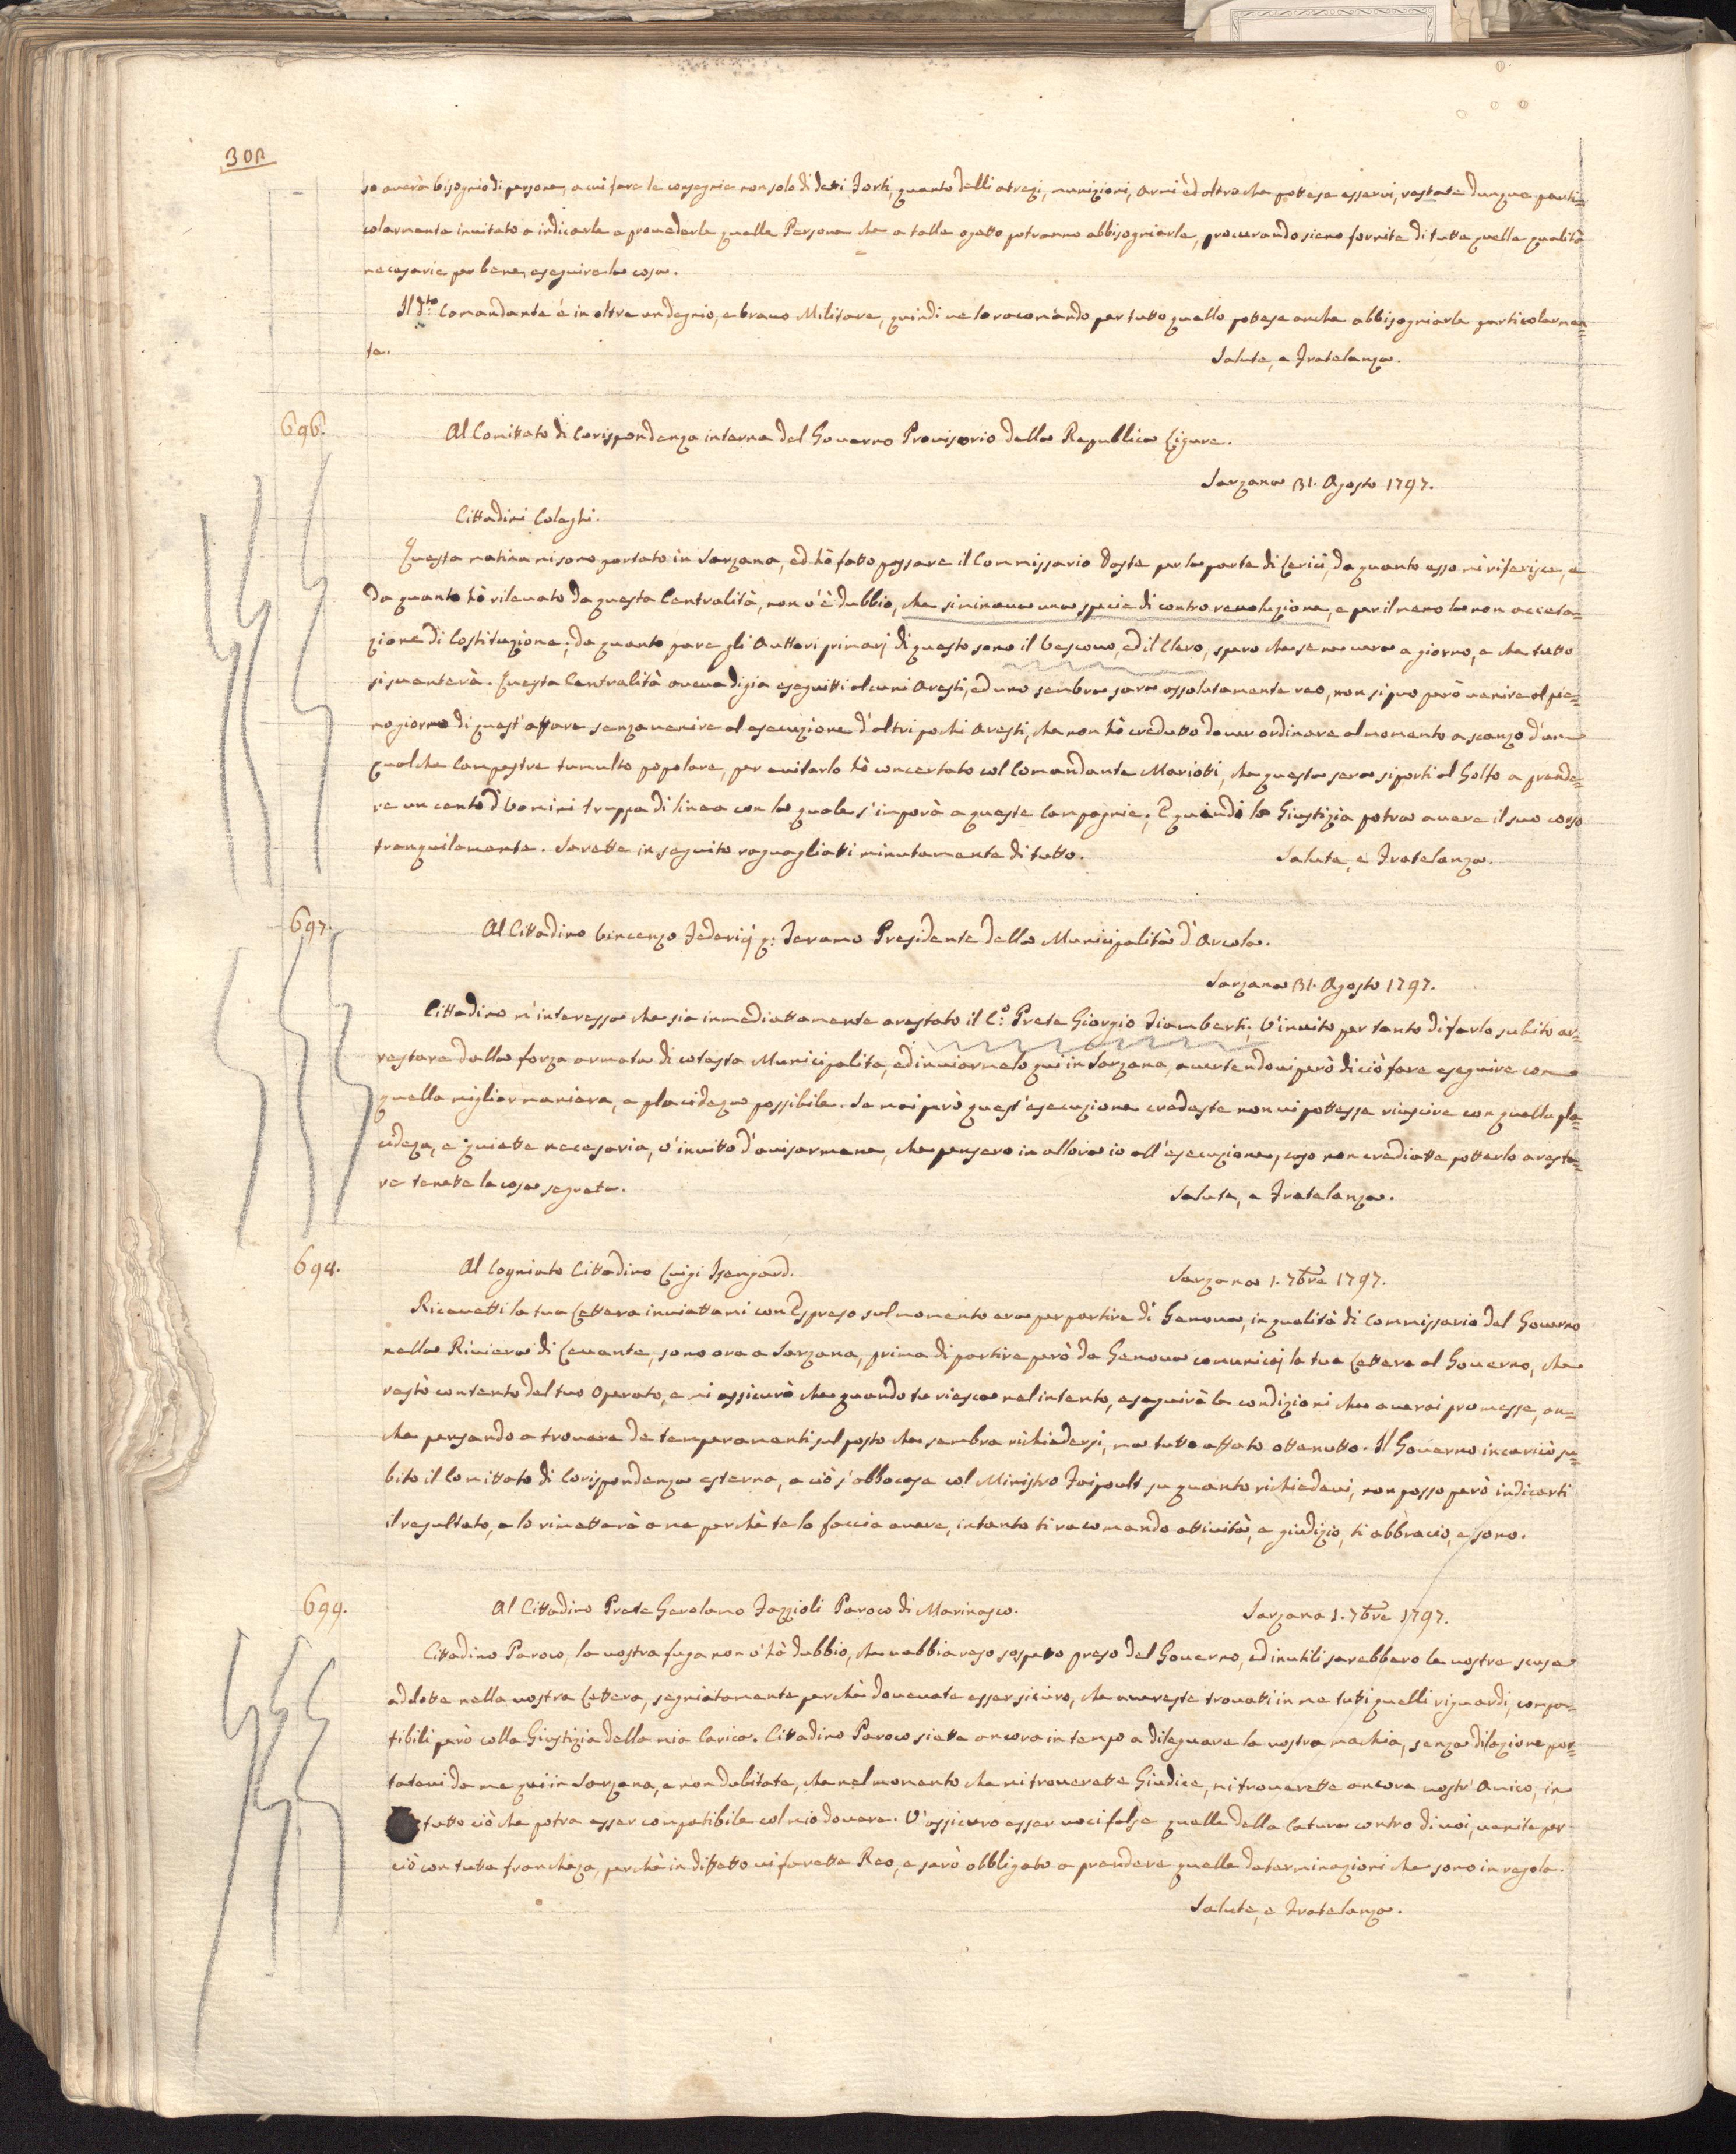 308
so averà bisognio di persone, a cui fare le consegnie non solo di detti Forti, quanto delli atrezi, munizioni, armi èd oltro che pottese esservi, restate dunque parti=
colarmente invitato a indicarle e provederle quelle Persone che a talle ogetto potranno abbisogniarle, procurando sieno fornite di tutte quelle qualità
necesarie per bene, eseguire la cosa.
Il d.to Comandante é in oltre un degnio, e bravo Militare, quindi ve lo racomàndo per tutto quello pottese anche abbisogniarle particolarmen=
te.
Salute, e Fratelanza.
696.
Al Comittato di Corispondenza interna del Governo Provisorio della Republica Ligure.
Sarzana 31. Agosto 1797.
Cittadini Coleghi.
Questa matina mi sono portato in Sarzana, ed hò fatto passare il Commissario Doste per la parte di Lerici, da quanto esso mi riferisce, e
da quanto hò rilevato da questa Centralità, non v'è dubbio, che si minava una specie di contro revoluzione, e per il meno la non acceta=
zione di Costituzione; da quanto pare gli Auttori primarj di questo sono il Vescovo, ed il Clero, spero che se ne verà a giorno, e che tutto
si sventerà. Questa Centralità aveva di gia eseguitti alcuni Aresti, ed uno sembra sara assolutamente reo, non si puo però venire al pie=
no giorno di quest'affare senza venire al esecuzione d'altri pochi Aresti, che non hò creduto dover ordinare al momento a scanzo d'un
qualche Campestre tumulto popolare, per evitarlo hò concertato col Comandante Mariotti, che questa sera si porti al Golfo a prende=
re un cento d'Uomini truppa di linea con la quale s'imporà a queste Campagnie; E quindi la Giustizia potra avere il suo corso
tranquilamente. Sarette in seguito raguagliatti minutamente di tutto.
Salute, e Fratelanza.
697.
Al Cittadino Vincenzo Federicj q: Feramo Presidente della Municipalità d'Arcola.
Sarzana 31. Agosto 1797.
Cittadino m'interessa che sia inmediattamente arestato il C.o Prete Giorgio Fiamberti; V'invito per tanto di farlo subito ar=
restare dalla forza armata di cotesta Municipalita, ed inviarmelo qui in Sarzana, avertendovi però di ciò fare eseguire con
quella miglior maniera, e placideza possibile. Se mai però quest'esecuzione credeste non vi pottesse riuscire con quella pla=
cideza, e quiette necesaria, v'invito d'avisarmene, che pensero in allora io all'esecuzione, caso non crediatte potterlo aresta=
re tenette la cosa segreta.
Salute, e Fratelanza.
698.
Al Cogniato Cittadino Luigi Isengard.
Sarzana 1. 7bre 1797.
Ricevetti la tua Lettera inviattami con Espreso sul momento era per partire di Genova, in qualità di Commissario del Governo
nella Riviera di Levante, sono ora a Sarzana, prima di partire però da Genova comunicaj la tua Lettera al Governo, che
restò contento del tuo Operato, e mi assicurò che quando tu riesca nel intento, eseguirà le condizioni che averai promesse, an=
che pensando a trovare de temperamenti sul posto che sembra richiedersi, ma tutto affato ottenutto. Il Governo incaricò su=
bito il Comittato di Corispondenza esterna, a ciò s'abbocase col Ministro Faipoult su quanto richiedevi, non posso però indicarti
il resultato, e lo rimetterà a me perchè te lo faccia avere, intanto ti racomando attività, e giudizio, ti abbraccio, e sono.
699.
Al Cittadino Prete Gerolamo Fazzioli Paroco di Marinasco.
Sarzana 1. 7bre 1797.
Citadino Paroco, la vostra fuga non v'hà dubbio, che v'abbia reso sospetto preso del Governo, ed inutili sarebbero le vostre scuse
addotte nella vostra Lettera, segniatamente perchè dovevate esser sicuro, che avereste trovatti in me tutti quelli riguardi, compa=
tibili però colla Giustizia della mia Carica. Cittadino Paroco siette ancora in tempo a dileguare la vostra machia, senza dilazione por=
tatevi da me quì in Sarzana, e non dubitate, che nel momento che mi troverette Giudice, mi troverette ancora vostr'Amico, in
tutto ciò che potra esser compatibile col mio dovere. V'assicuro esser voci false quelle della Catura contro di voi, venite per
ciò con tutta francheza, perchè in diffetto vi farette Reo, e sarò obbligato a prendere quelle determinazioni che sono in regola.
Salute, e Fratelanza.